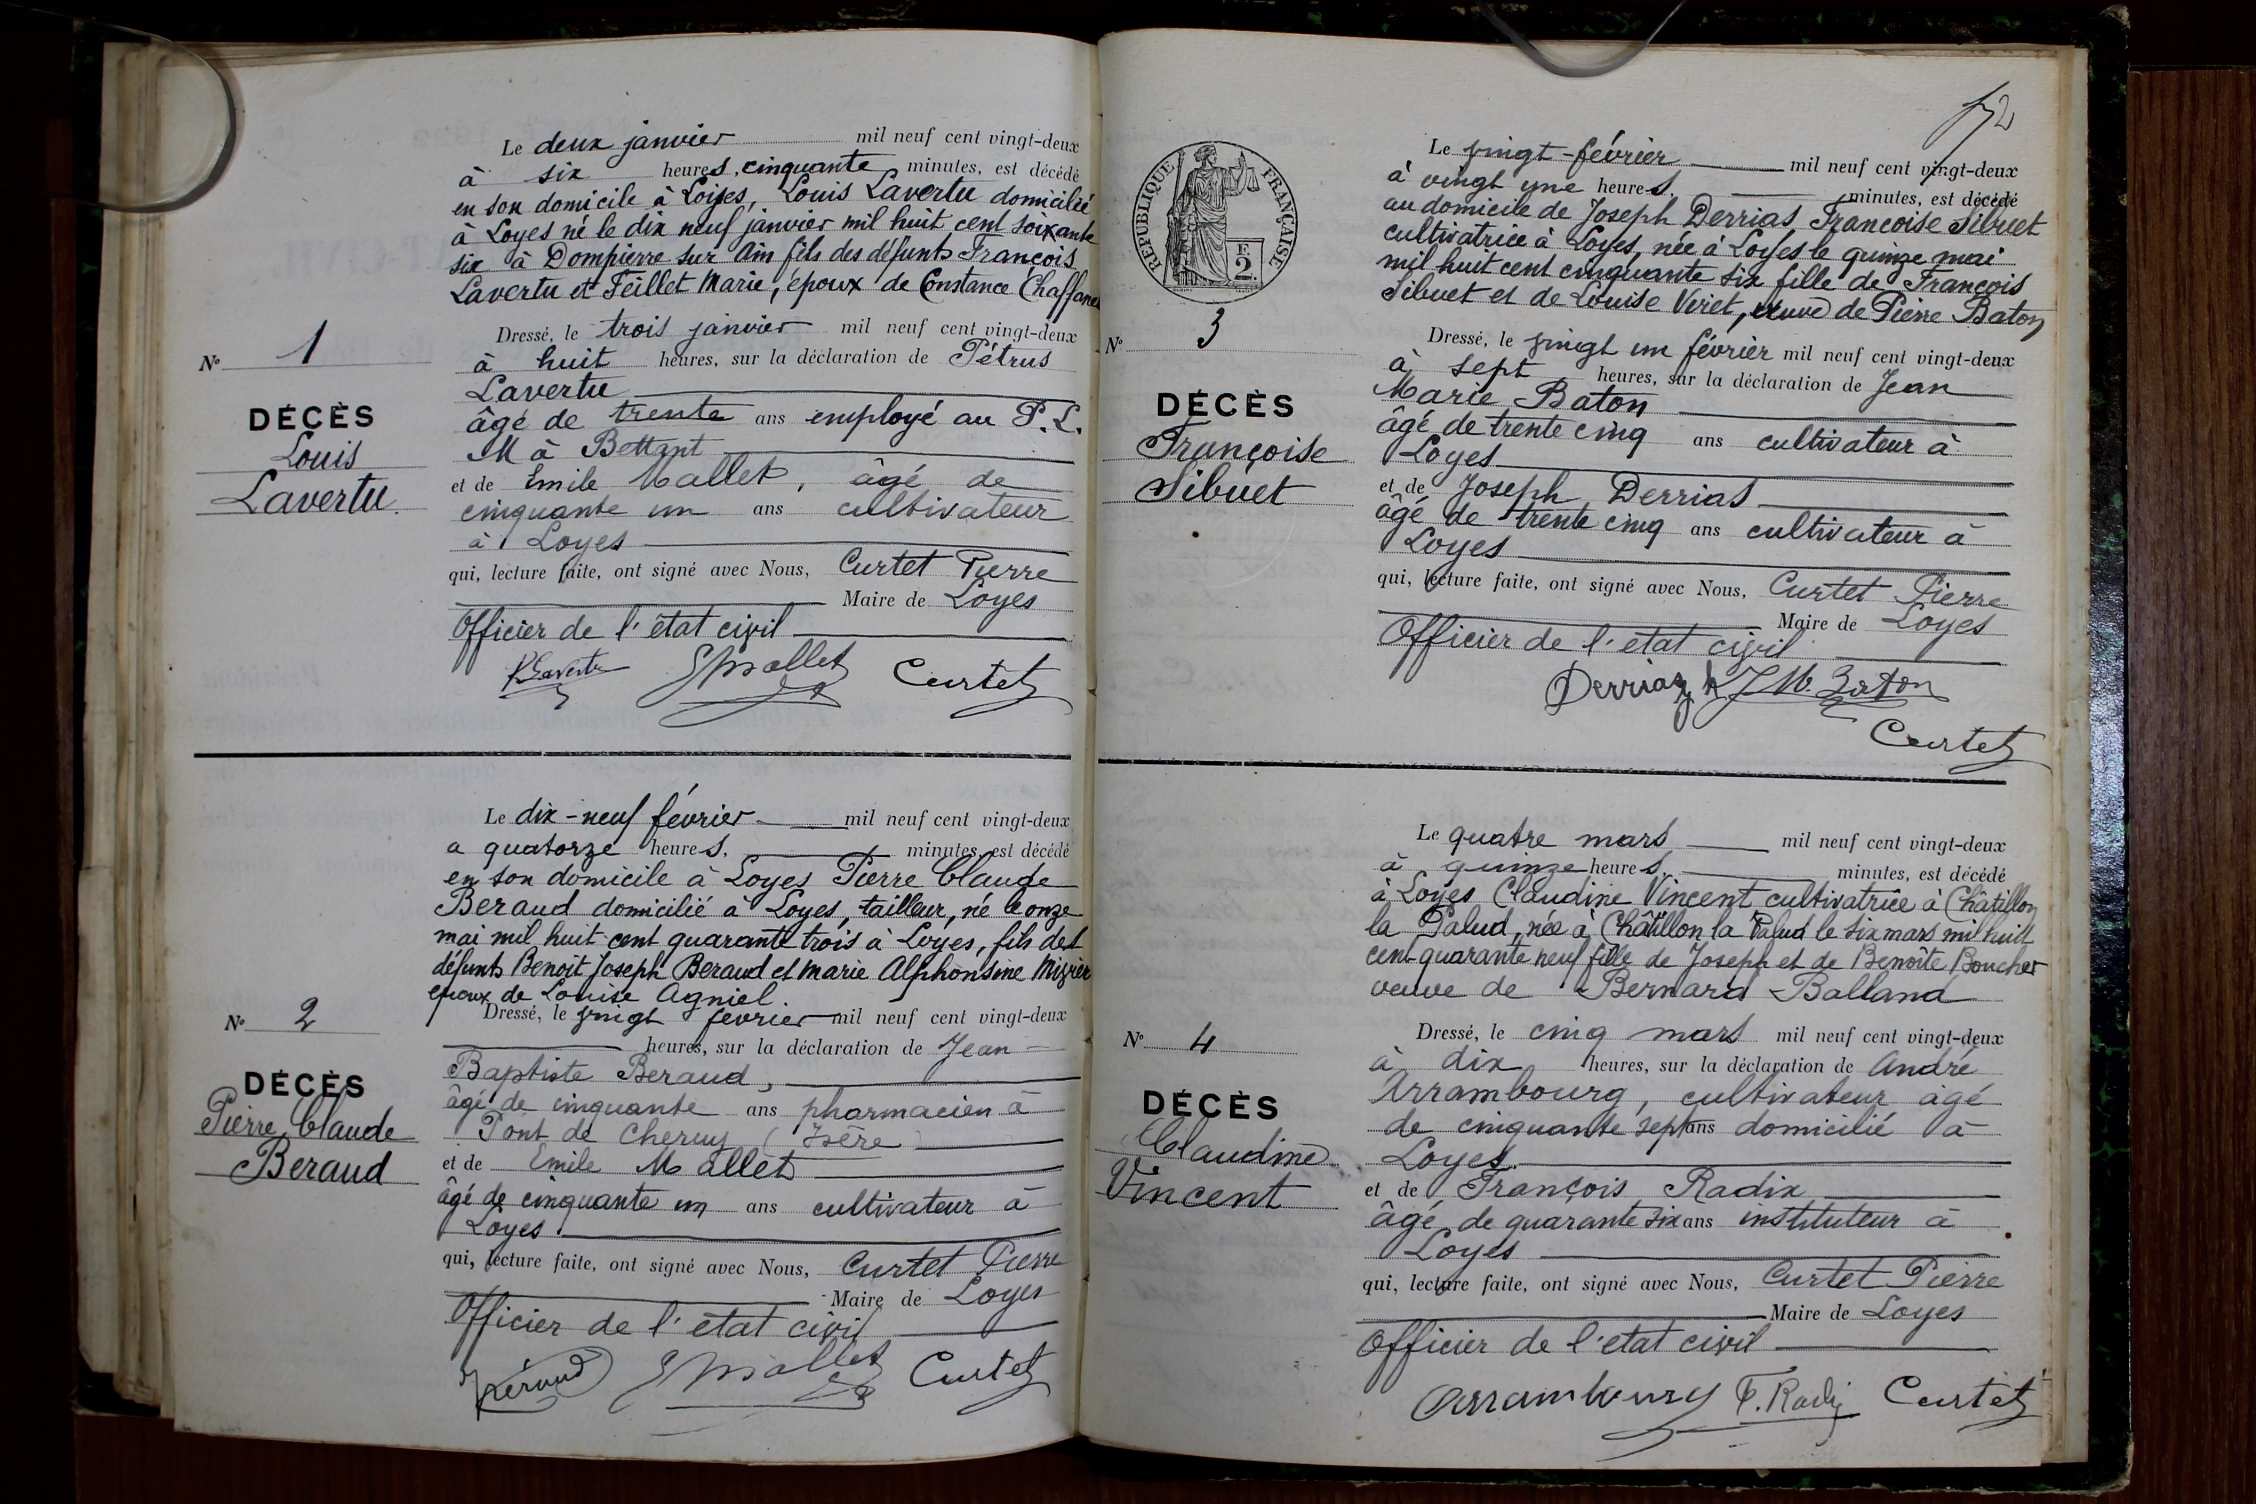 Le deux janvier mil neuf cent vingt-deux
à six heures, cinquante minutes, est décédé
en son domicile à Loyes, Louis Lavertu domicilié
à Loyes né le dix neuf janvier mil huit cent soixante
six à Dompierre sur Ain fils des défunts François
Lavertu et Feillet Marie, époux de Constance
Dressé, le trois janvier mil neuf cent vingt-deux
à huit heures, sur la déclaration de Pétrus
Lavertu
âgé de trente ans employé au P. L.
M à Bettant
et de Emile Mallet, âgé de
cinquante un ans cultivateur
à Loyes
qui, lecture faite, ont signé avec Nous, Curtet Pierre
Maire de Loyes
Officier de l'état civil
P Lavertu EMallet Curtet
No 1
DÉCÈS
Louis
Lavertu
Le dix-neuf février mil neuf cent vingt-deux
a quatorze heures, minutes, est décédé
en son domicile à Loyes Pierre Claude
Beraud domicilié à Loyes, tailleur, né le onze
mai mil huit cent quarante trois à Loyes, fils des
défunts Benoit Joseph Beraud et Marie Alphonsine
époux de Louise Agniel.
Dressé, le vingt février mil neuf cent vingt-deux
heures, sur la déclaration de Jean
Baptiste Beraud,
âgé de cinquante ans pharmacien à
Pont de Cheruy (Isère)
et de Emile Mallet
âgé de cinquante un ans cultivateur à
Loyes.
qui, lecture faite, ont signé avec Nous, Curtet Pierre
Maire de Loyes
Officier de l'état civil
Béraud EMallet Curtet
No 2
DÉCÈS
Pierre Claude
Beraud
72
RÉPUBLIQUE FRANÇAISE
2 F.
Le vingt-février mil neuf cent vingt-deux
à vingt une heures. minutes, est décédé
au domicile de Joseph Derrias Françoise Sibuet
cultivatrice à Loyes, née à Loyes le quinze mai
mil huit cent cinquante six fille de François
Sibuet et de Louise Viret, veuve de Pierre Baton
Dressé, le vingt un février mil neuf cent vingt-deux
à sept heures, sur la déclaration de Jean
Marie Baton
âgé de trente cinq ans cultivateur à
Loyes
et de Joseph Derrias
âgé de trente cinq ans cultivateur à
Loyes
qui, lecture faite, ont signé avec Nous, Curtet Pierre
Maire de Loyes
Officier de l'état civil
Derriaz J M. Baton
Curtet
No 3
DÉCÈS
Françoise
Sibuet
Le quatre mars mil neuf cent vingt-deux
à quinze heures. minutes, est décédé
à Loyes Claudine Vincent cultivatrice à Châtillon
la Palud, née à Châtillon la Palud le six mars mil huit
cent quarante neuf fille de Joseph et de Benoîte Boucher
veuve de Bernard Balland
Dressé, le cinq mars mil neuf cent vingt-deux
à dix heures, sur la déclaration de André
Arrambourg, cultivateur âgé
de cinquante sept ans domicilié à
Loyes.
et de François Radix
âgé de quarante six ans instituteur à
Loyes
qui, lecture faite, ont signé avec Nous, Curtet Pierre
Maire de Loyes
Officier de l'etat civil
Arrambourg F. Radix Curtet
No 4
DÉCÈS
Claudine
Vincent